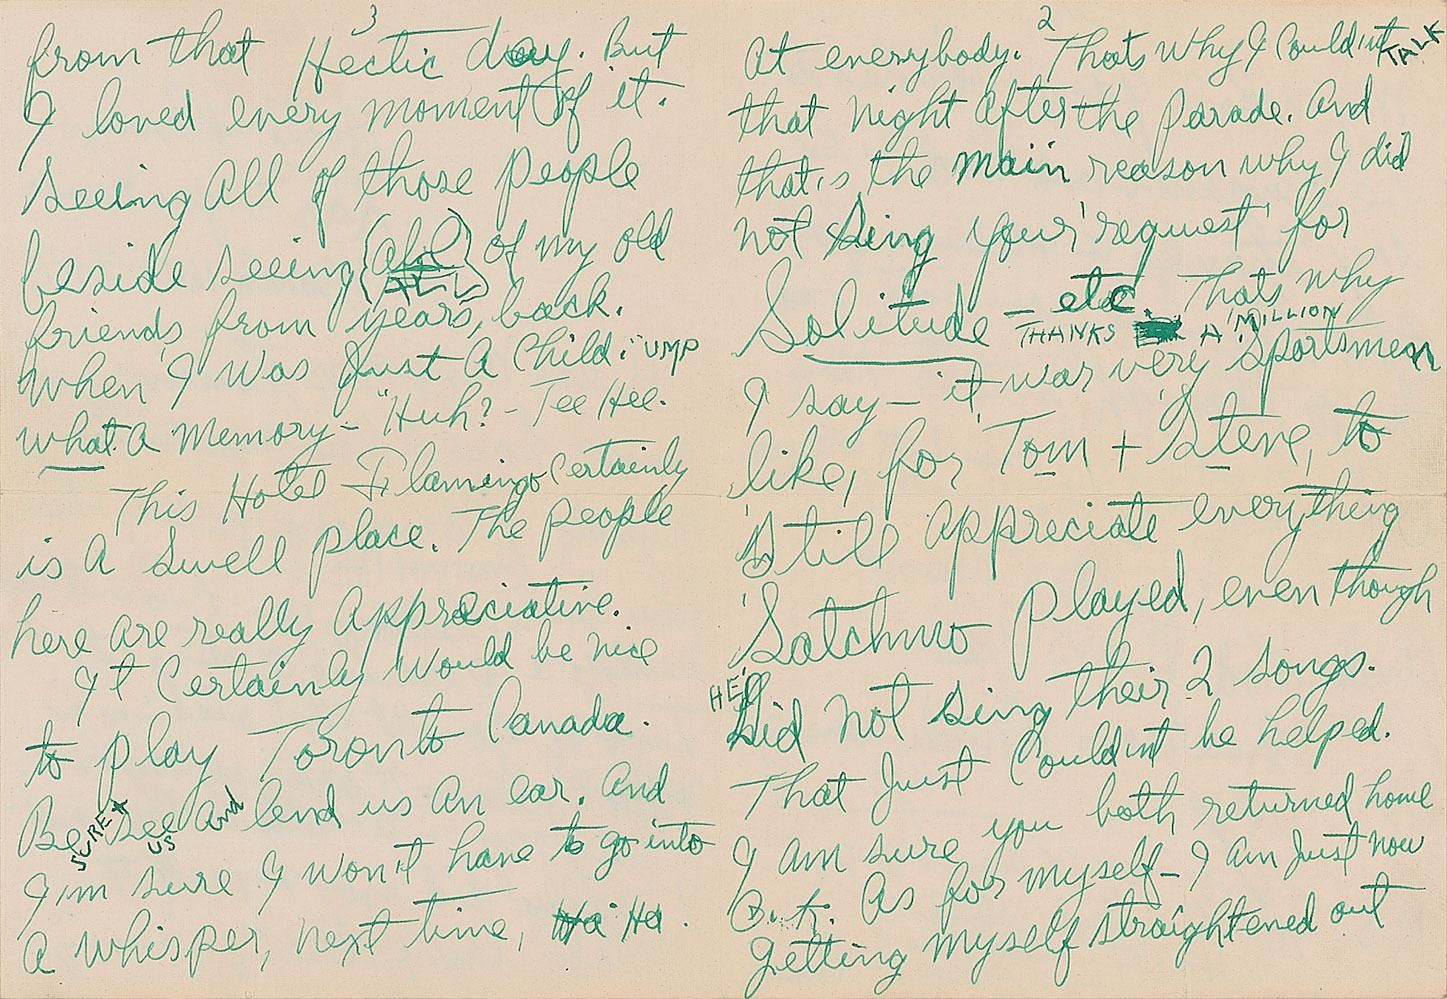 2
at everybody. Thats why I Couldn't TALK
that night after the Parade. And
that's the main reason why I did
not sing your 'request' for
Solitude – etc. Thats why
THANKS A 'MILLION
I say – it was very Sportsmen
like, for Tom + Steve, to
still appreciate everything
Satchmo played, even though
HE'
did not sing their 2 songs.
That Just Couldn't be helped.
I am sure you both returned home
O.K. As for myself – I am Just now
getting myself straightened out
3
from that Hectic day. But
I loved every moment of it.
Seeing All of those people
beside seeing (all) of my old
friends from years, back.
When I was Just A Child. "UMP
what A Memory – "Huh? – Tee Hee.
This Hotel Flamingo Certainly
is A Swell place. The people
here are really Appreciative.
It Certainly would be nice
to play Toronto Canada.
Be SURE + see US and lend us An ear. And
I'm sure I won't have to go into
A whisper, next time, Ha Ha.